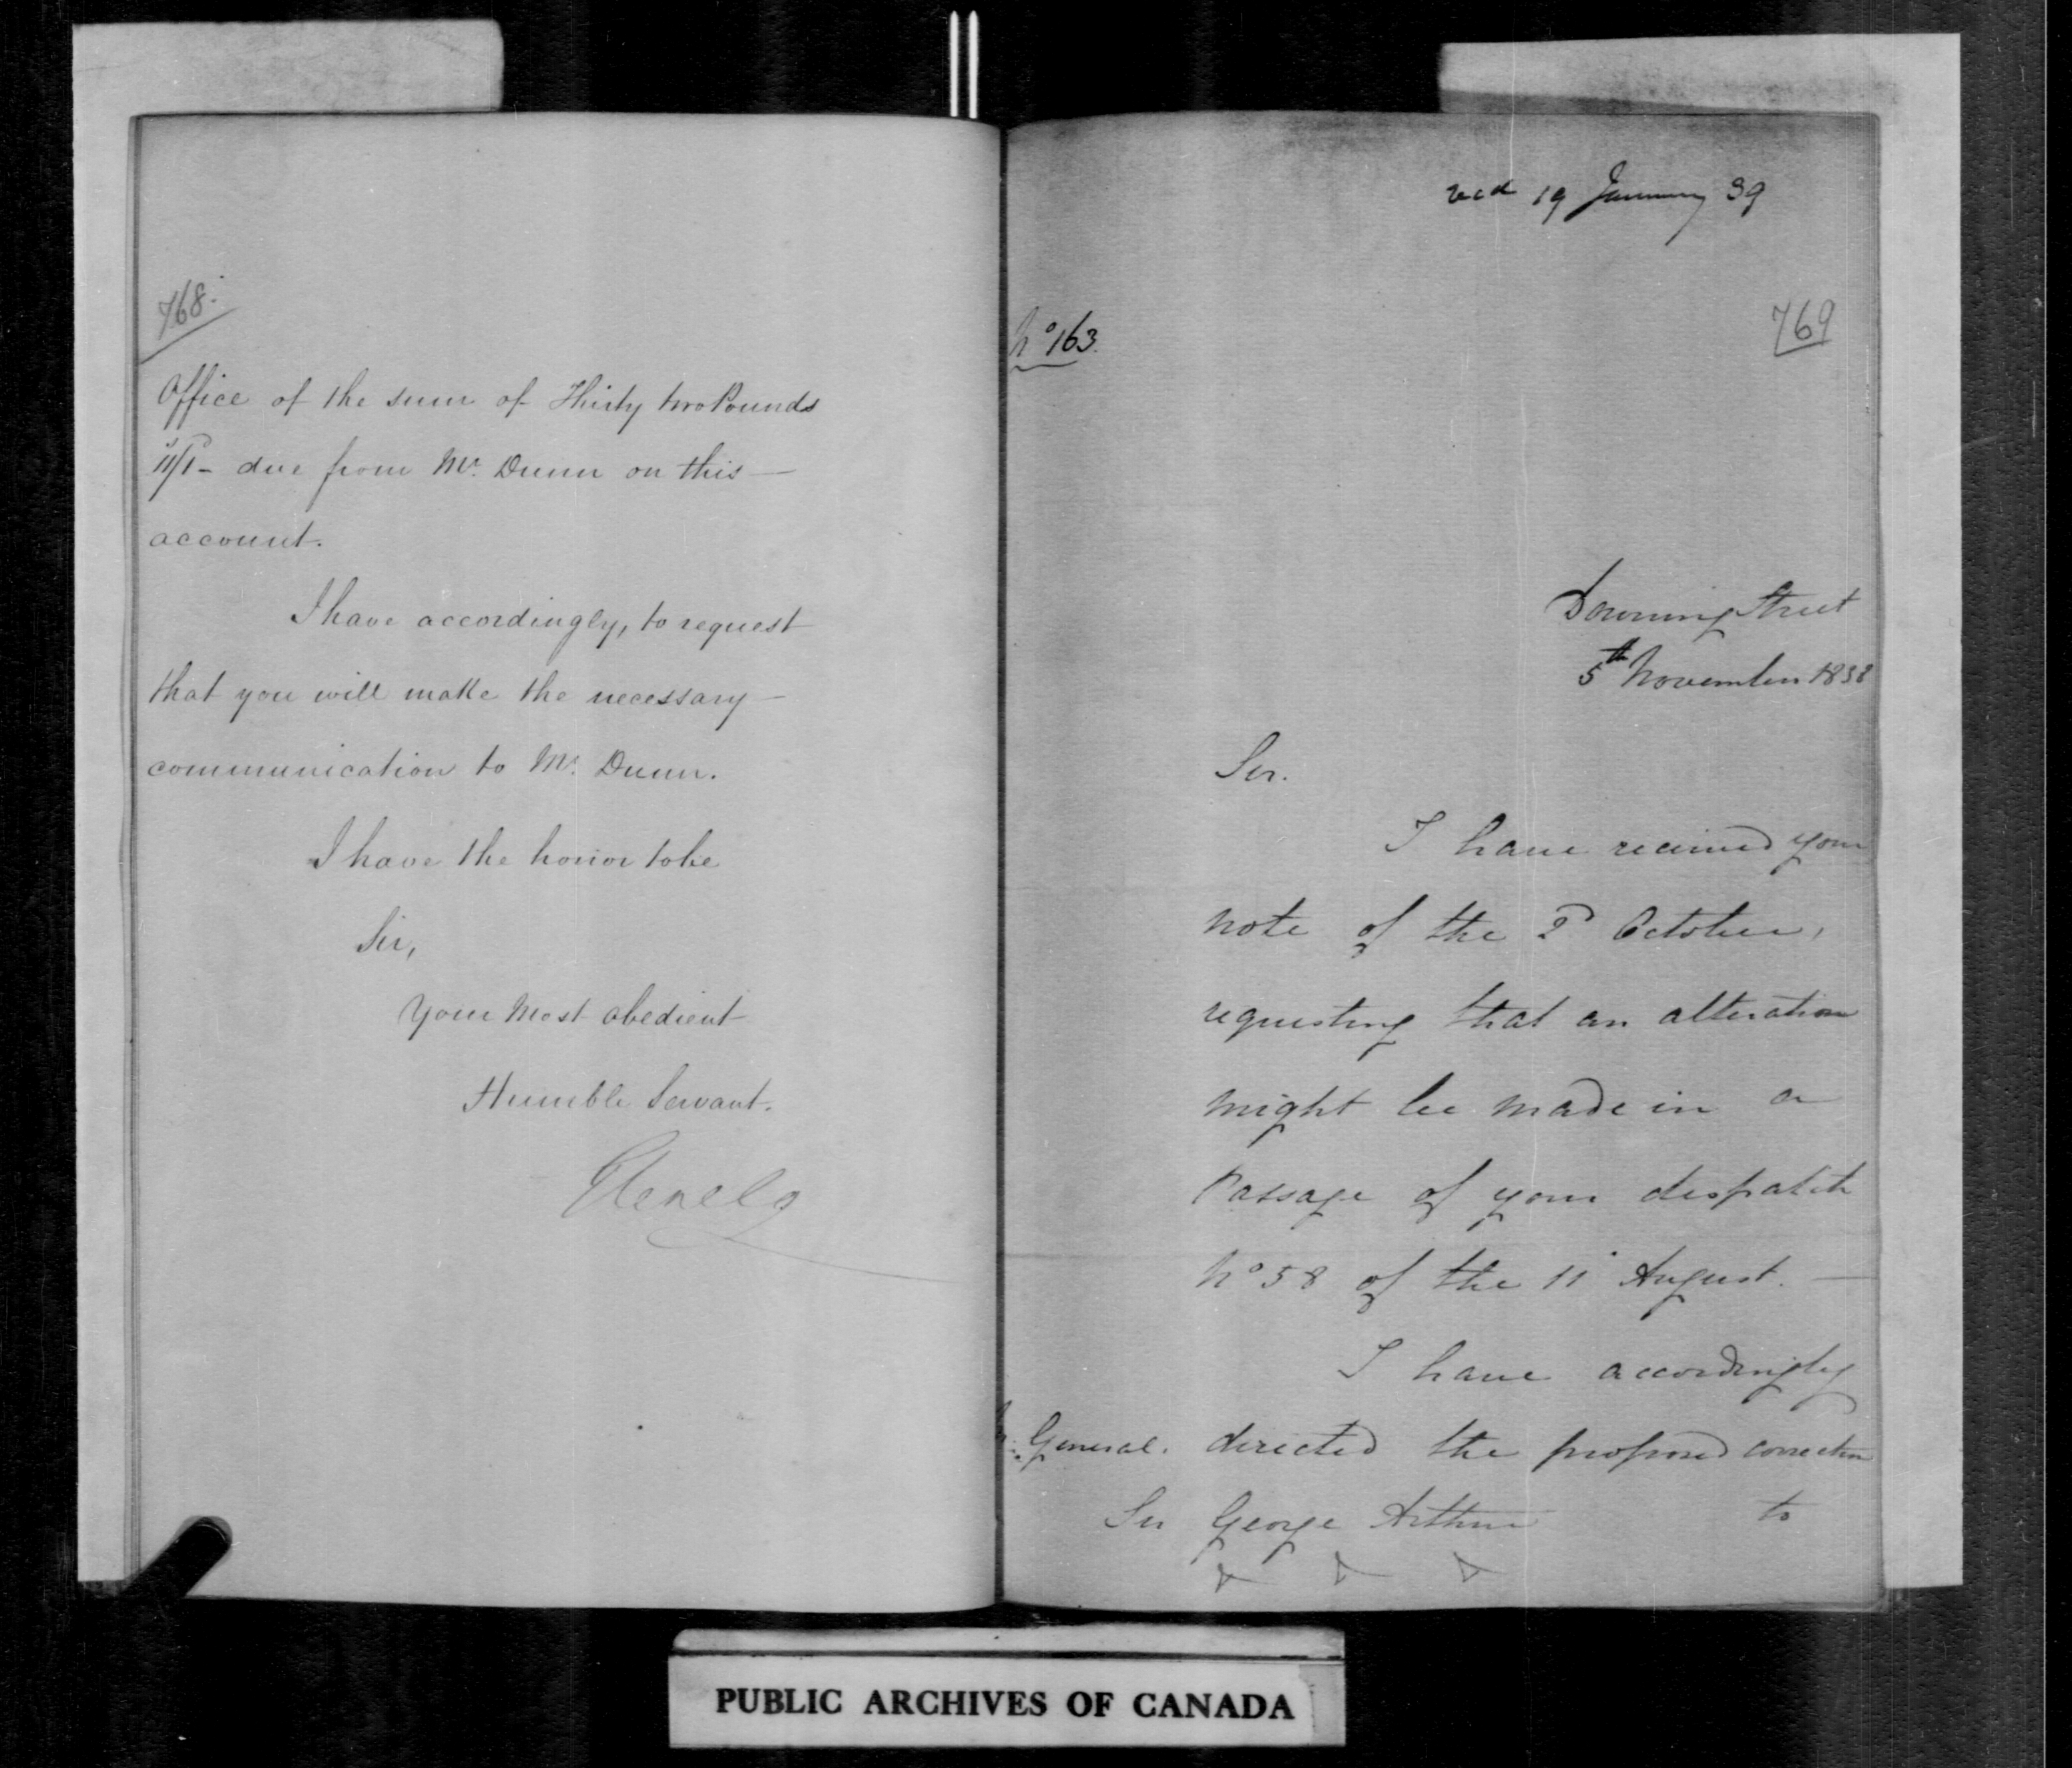 768.
Office of the sum of Thirty two Pounds
11/1 - due from Mr. Dunn on this
account.
I have accordingly, to request
that you will make the necessary
communication to Mr. Dunn.
I have the honor to be
Sir,
Your Most obedient
Humble Servant.
Glenelg
recd 19 January 39
No 163.
769
Downing Street
5th November 1838
Sir.
I have received your
note of the 2d October,
requesting that an alteration
might be made in a
Passage of your despatch
No 58 of the 11 August.
I have accordingly
General. directed the proposed correction
Sir George Arthur to
PUBLIC ARCHIVES OF CANADA